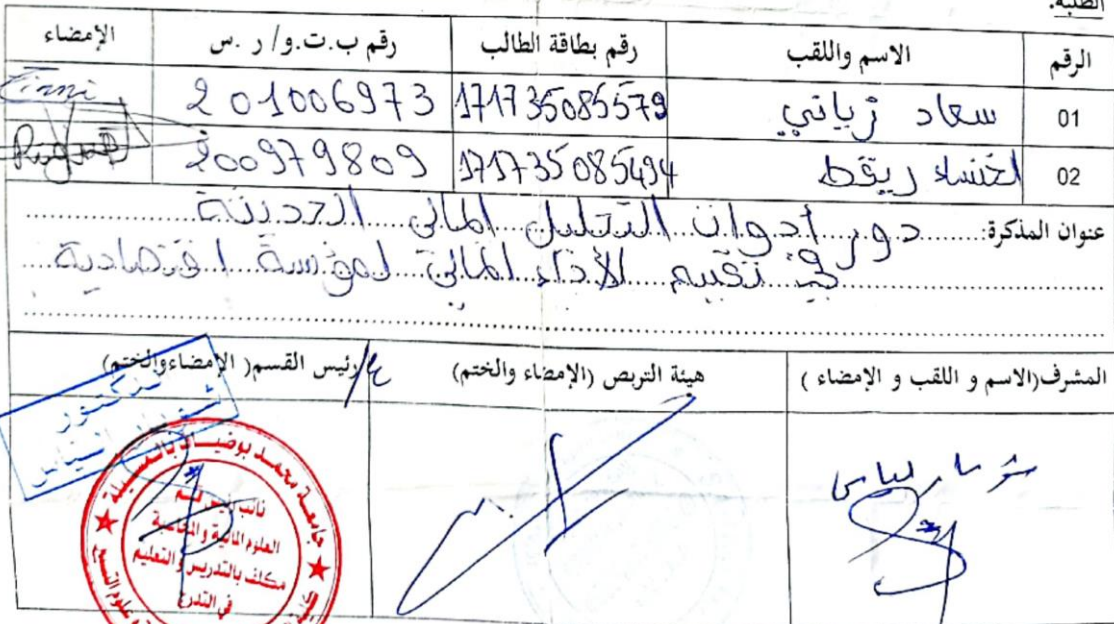 الطلبة:
الرقم الاسم واللقب رقم بطاقة الطالب رقم ب.ت.و/ ر .س الإمضاء
01 سعاد زياني 171735085579 201006973
02 لخنساء ريقط 171735085494 200979809
عنوان المذكرة: دور أدوات التحليل المالي الحديثة
في تقييم الأداء المالي لمؤسسة اقتصادية
المشرف(الاسم و اللقب و الإمضاء ) هيئة التربص (الإمضاء والختم) رئيس القسم( الإمضاءوالختم)
جامعة محمد بوضياف بالمسيلة
نائب رئيس قسم
العلوم المالية والمحاسبة
مكلف بالتدريس والتعليم
في التدرج